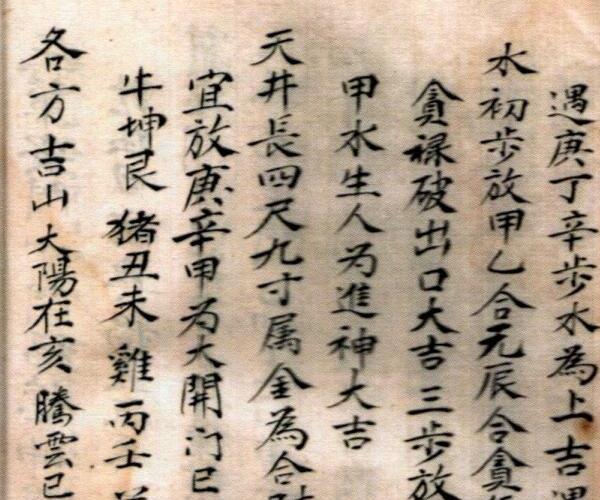 遇庚丁辛步水為上吉
水初步放甲乙合元辰合貪
貪祿破出口大吉三步放
甲水生人为進神大吉
天井長四尺九寸属金為合
宜放庚辛甲为大開门巳
牛坤艮猪丑未雞丙壬
各方吉山太陽在亥騰雲巳